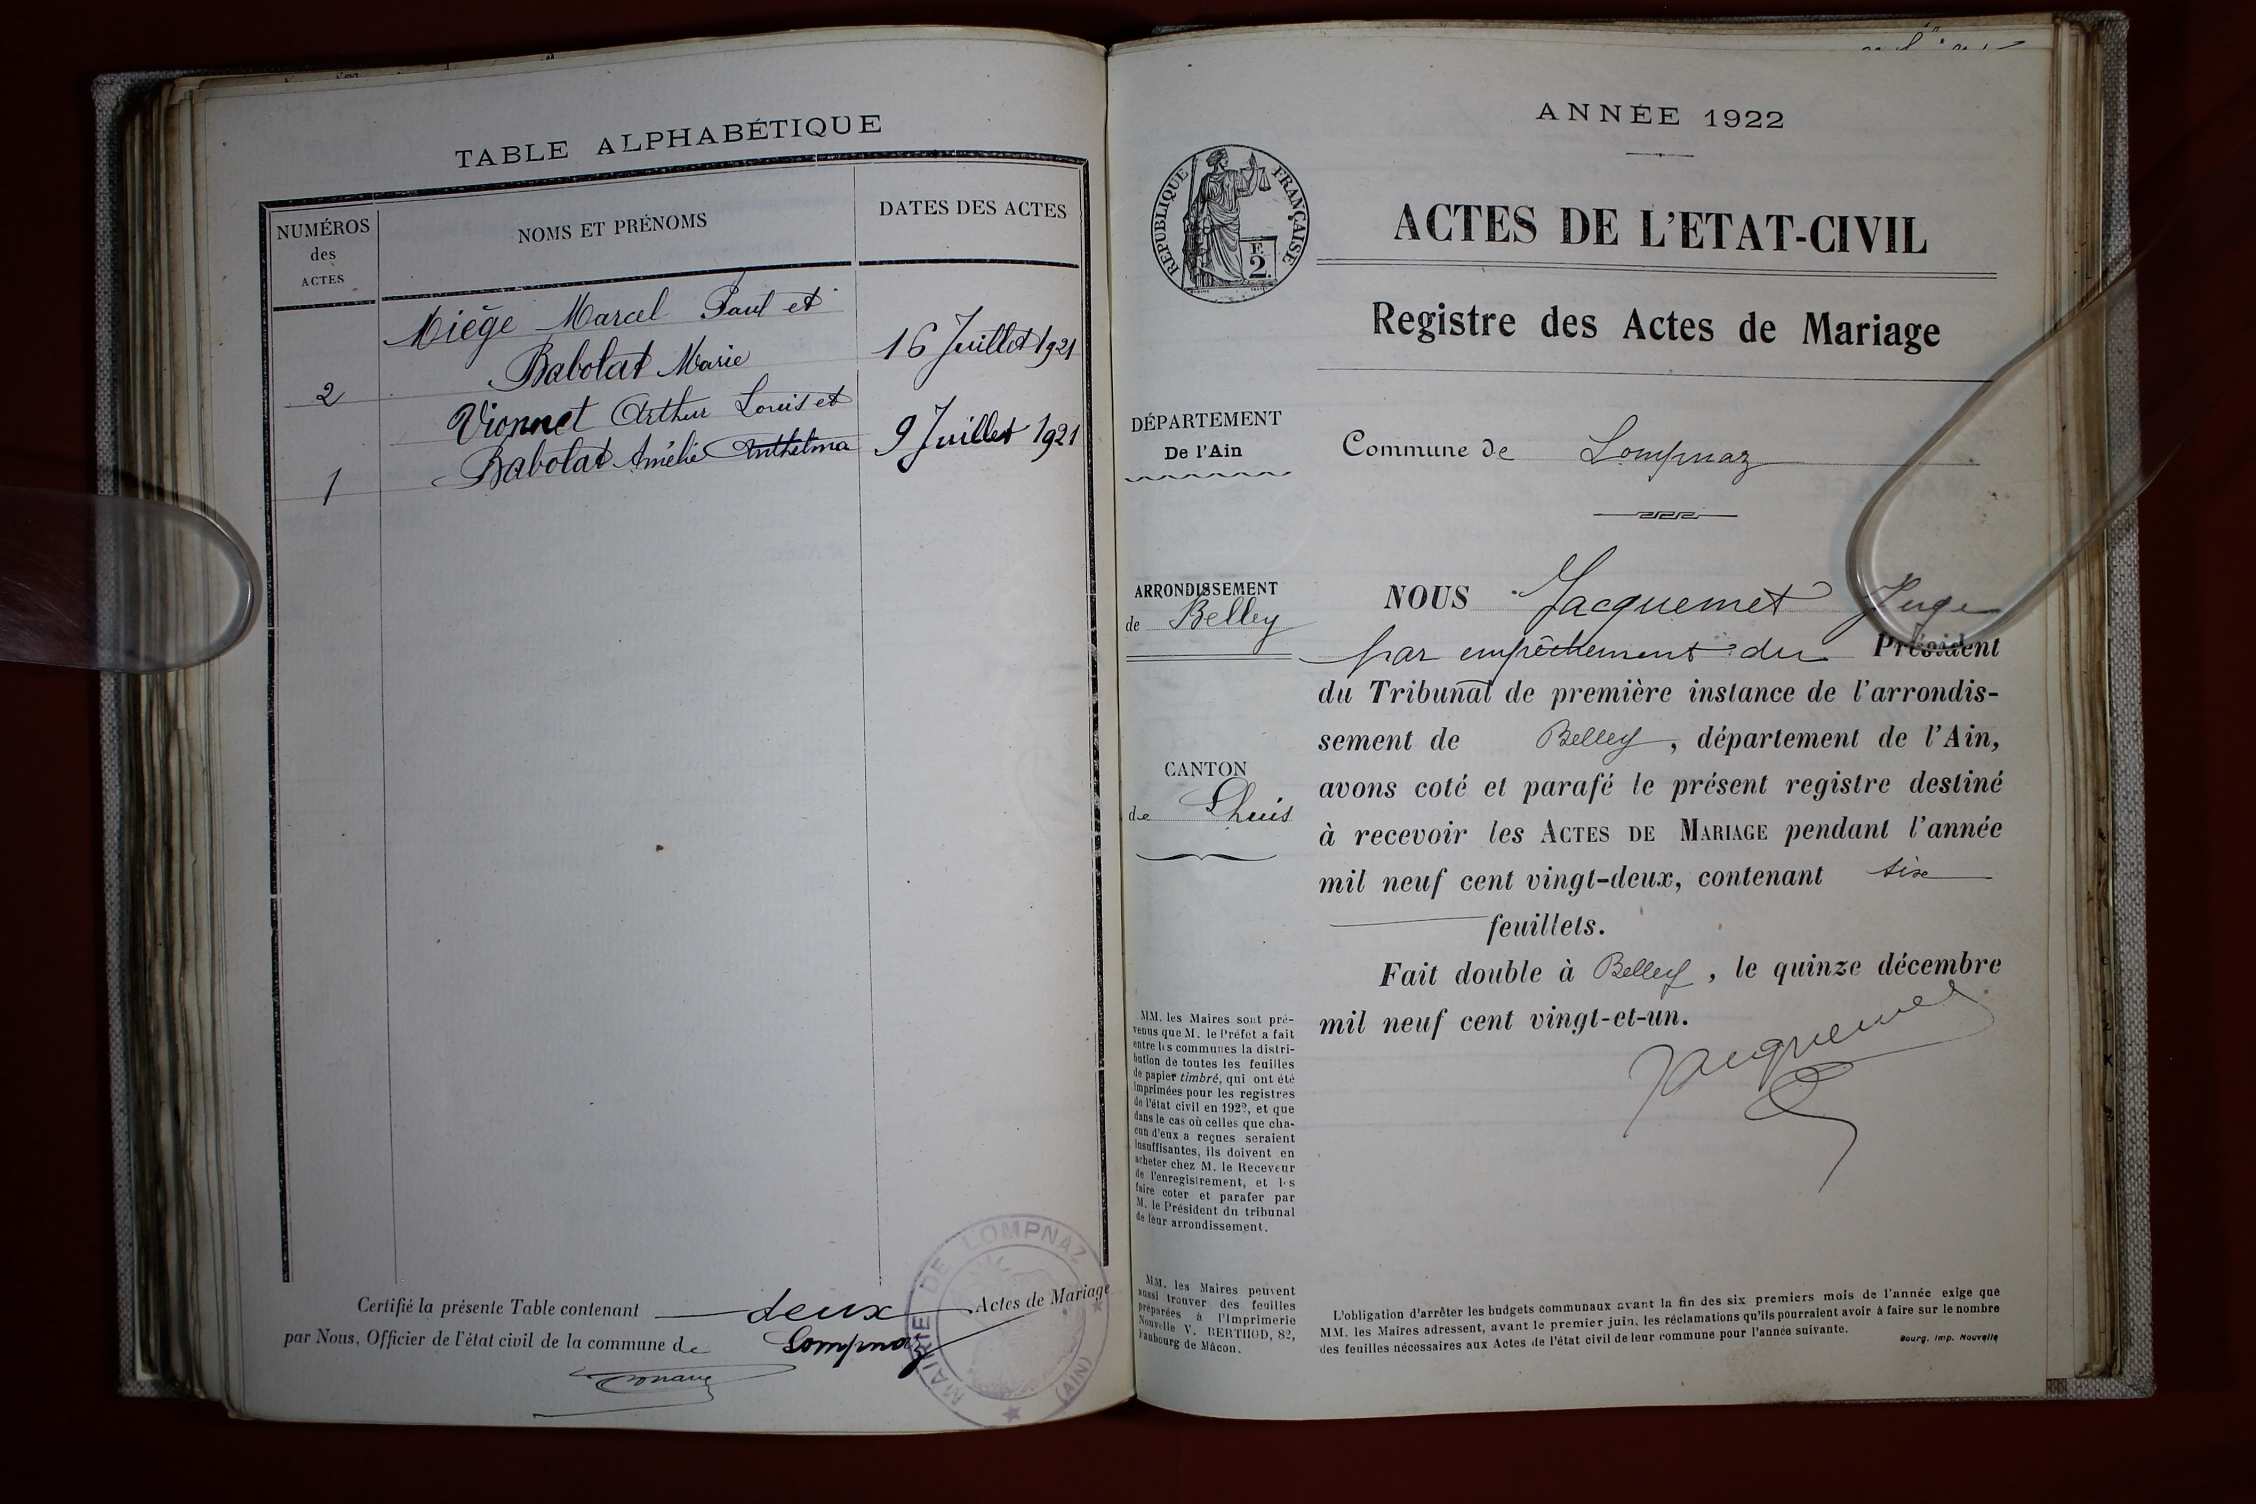 TABLE ALPHABÉTIQUE
NUMÉROS
des
ACTES
NOMS ET PRÉNOMS
DATES DES ACTES
Miège Marcel Paul et
Babolat Marie
2
16 Juillet 1921
Vionnet Arthur Louis et
Babolat Amélie Anthelma
1
9 Juillet 1921
Certifié la présente Table contenant deux Actes de Mariage
par Nous, Officier de l'état civil de la commune de Lompnaz
MAIRIE DE LOMPNAZ
(AIN)
ANNÉE 1922
REPUBLIQUE FRANÇAISE
F.
2.
ACTES DE L'ETAT-CIVIL
Registre des Actes de Mariage
DÉPARTEMENT
De l'Ain
Commune de Lompnaz
ARRONDISSEMENT
de Belley
CANTON
de Lhuis
NOUS Jacquemet Juge
par empêchement du Président
du Tribunal de première instance de l'arrondis-
sement de Belley, département de l'Ain,
avons coté et parafé le présent registre destiné
à recevoir les ACTES DE MARIAGE pendant l'année
mil neuf cent vingt-deux, contenant six
feuillets.
Fait double à Belley, le quinze décembre
mil neuf cent vingt-et-un.
Jacquemet
MM. les Maires sont pré-
venus que M. le Préfet a fait
entre les communes la distri-
bution de toutes les feuilles
de papier timbré, qui ont été
imprimées pour les registres
de l'état civil en 1922, et que
dans le cas où celles que cha-
cun d'eux a reçues seraient
insuffisantes, ils doivent en
acheter chez M. le Receveur
de l'enregistrement, et les
faire coter et parafer par
M. le Président du tribunal
de leur arrondissement.
MM. les Maires peuvent
aussi trouver des feuilles
préparées à l'Imprimerie
Nouvelle V. BERTHOD, 82,
Faubourg de Mâcon.
L'obligation d'arrêter les budgets communaux avant la fin des six premiers mois de l'année exige que
MM. les Maires adressent, avant le premier juin, les réclamations qu'ils pourraient avoir à faire sur le nombre
des feuilles nécessaires aux Actes de l'état civil de leur commune pour l'année suivante.
Bourg. Imp. Nouvelle